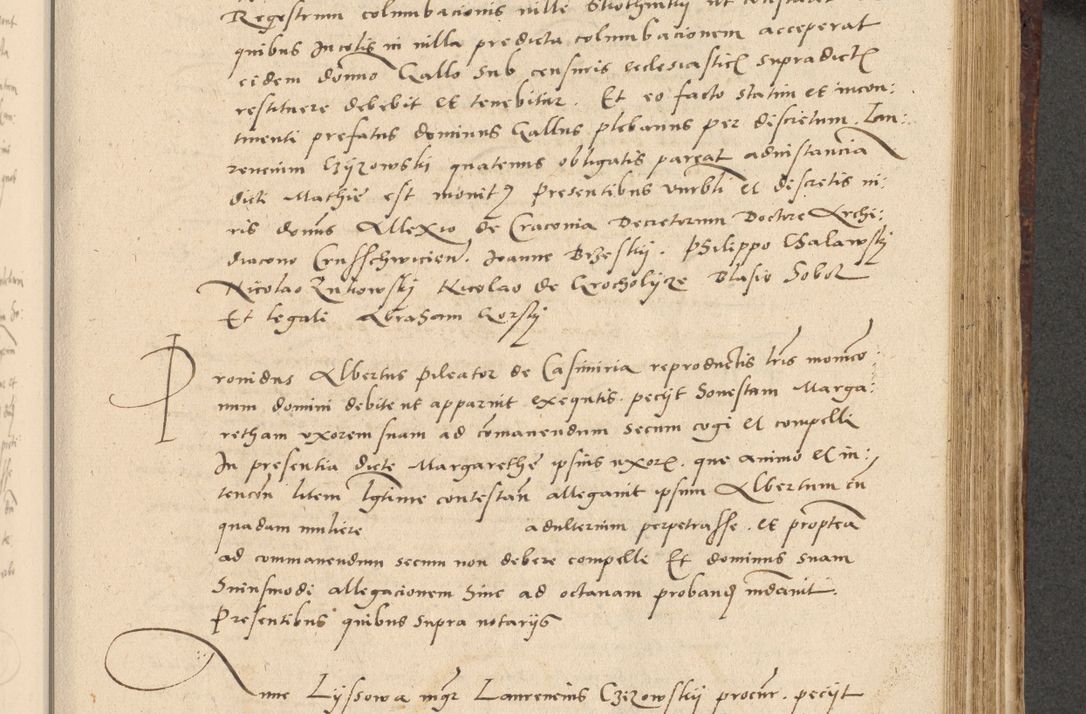 Regestrum columbacionis ville
quibus Incolis in villa predicta columbacionem acceperat
eidem domino Gallo sub censuris ecclesiastic supradict
restituere debebit et tenebitur. Et eo facto statim et incon:
tinenti prefatus dominus Gallus plebanus per discretum Lau:
rencium Czyzowski quatenus obligatis pareat ad instancia
dicti Mathie est monit9 presentibus vnrbli et discretis vi:
ris domis Allexio de Cracouia Decretorum Doctore Archi:
diacono Joanne Brzeskij. Philippo Chalawskj
Nicolao Zukowskj Nicolao de Grocholyze Blasio Sobol
Et legali Abraham Gorskj
Prouidus Albertus pileator de Casimiria reproductis lris
num domini debite ut apparuit exequtis. pecijt honestam Marga:
retham vxorem suam ad comanendum secum cogi et compelli
In presentia dicte Margarethe ipsius uxor. que animo et in:
tencon litem lgtime contestan allegauit ipsum Albertum cu
quadam muliere adulterium perpetrasse. et proptea
ad commanendum secum non debere compelli Et dominus suam
huiusmodi allegacionem hinc ad octauam proband mdauit.
Presentibus quibus supra notarijs
Anne Lyssowa mgr Laurencius Czyzowskij procur. pecijt